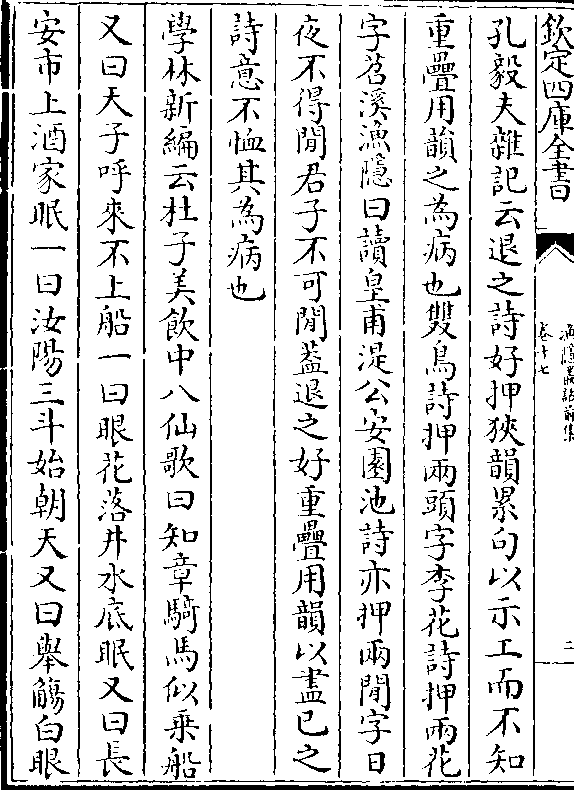 欽定四庫全書
漁隱叢話前集
卷十七
二
孔毅夫雜記云退之詩好押狹韻累句以示工而不知
重疊用韻之為病也雙鳥詩押兩頭字李花詩押兩花
字苕溪漁隱曰讀皇甫湜公安園池詩亦押兩閒字曰
夜不得閒君子不可閒葢退之好重疊用韻以盡已之
詩意不恤其為病也
學林新編云杜子美飲中八仙歌曰知章騎馬似乗船
又曰天子呼來不上船一曰眼花落井水底眠又曰長
安市上酒家眠一曰汝陽三斗始朝天又曰舉觴白眼